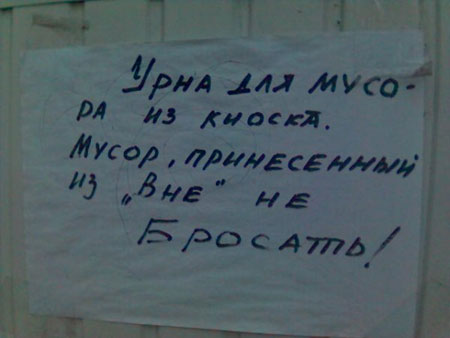 Урна для мусо-
ра из киоска.
Мусор, принесенный
из „Вне" не
Бросать!